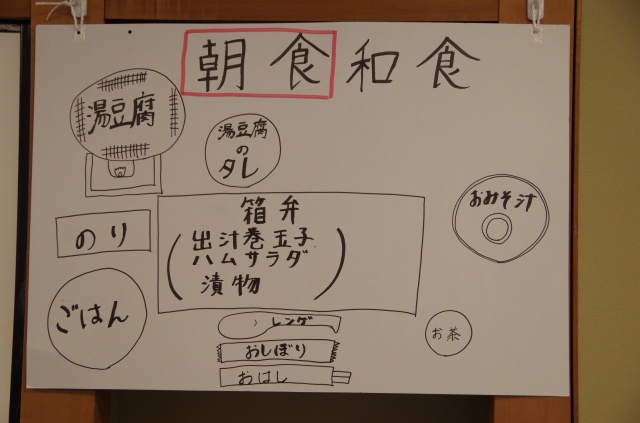 朝食和食
湯豆腐
湯豆腐
の
タレ
おみそ汁
箱弁
のり
(出汁巻玉子
ハムサラダ
漬物)
ごはん
レンゲ
お茶
おしぼり
おはし